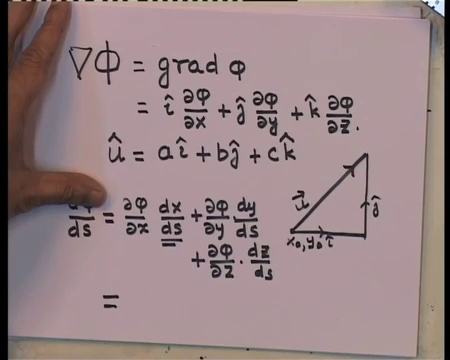 ∇Φ = grad φ
= î ∂φ/∂x + ĵ ∂φ/∂y + k̂ ∂φ/∂z.
û = aî + bĵ + ck̂
dφ/ds = ∂φ/∂x dx/ds + ∂φ/∂y dy/ds
+ ∂φ/∂z · dz/ds
=
u⃗
ĵ
x₀, y₀ î